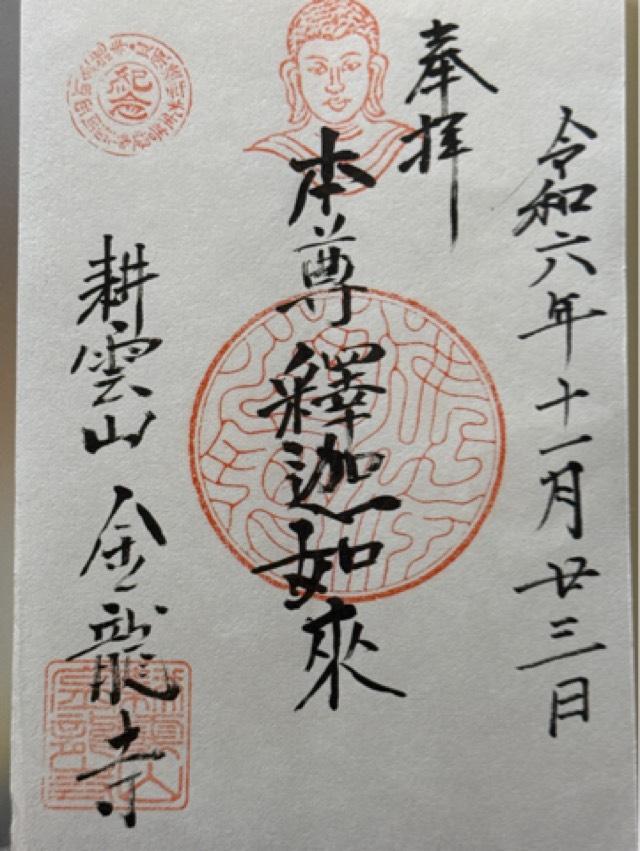 奉拝
令和六年十一月廿三日
本尊釋迦如來
耕雲山金龍寺
紀念